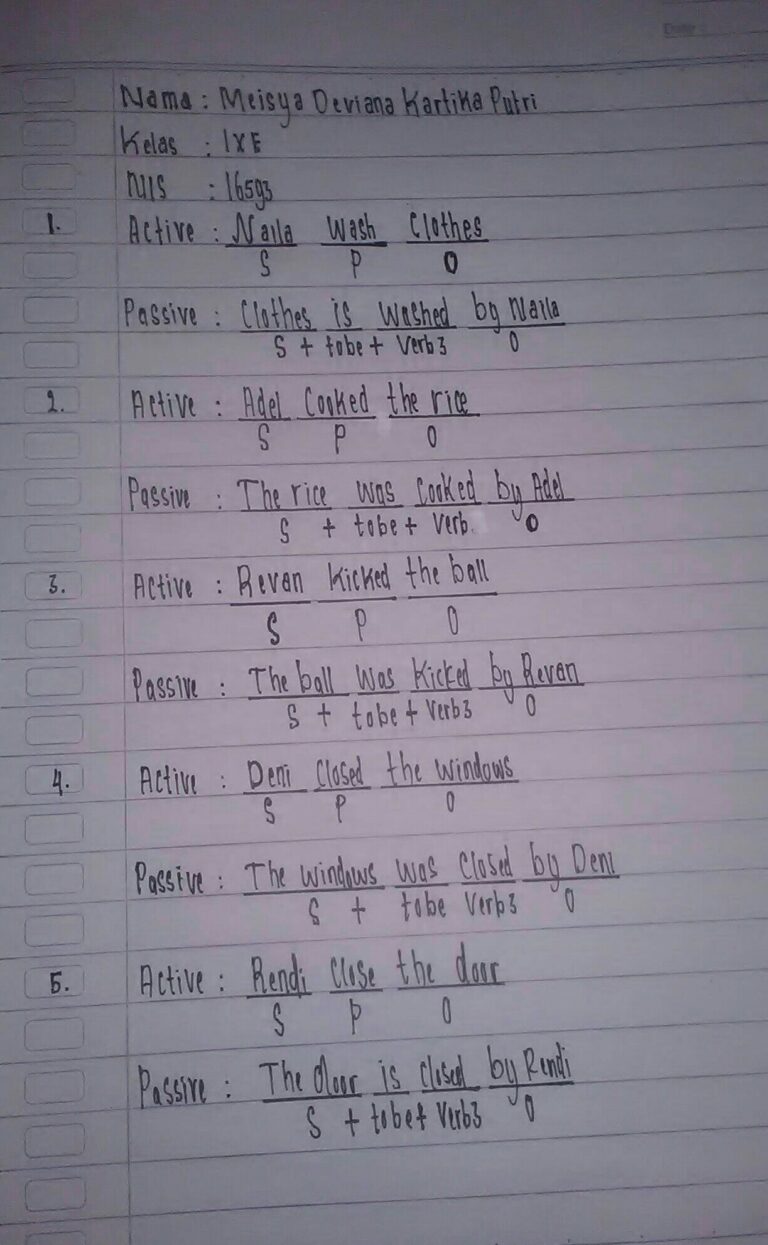 Nama : Meisya Deviana Kartika Putri
Kelas : IXE
NIS : 16593
1. Active : Naila Wash Clothes
S P O
Passive : Clothes is washed by Naila
S + tobe + Verb3 O
2. Active : Adel Cooked the rice
S P O
Passive : The rice was Cooked by Adel
S + tobe + Verb. O
3. Active : Revan Kicked the ball
S P O
Passive : The ball was Kicked by Revan
S + tobe + Verb3 O
4. Active : Deni Closed the windows
S P O
Passive : The windows was closed by Deni
S + tobe Verb3 O
5. Active : Rendi Close the door
S P O
Passive : The door is closed by Rendi
S + tobe + Verb3 O